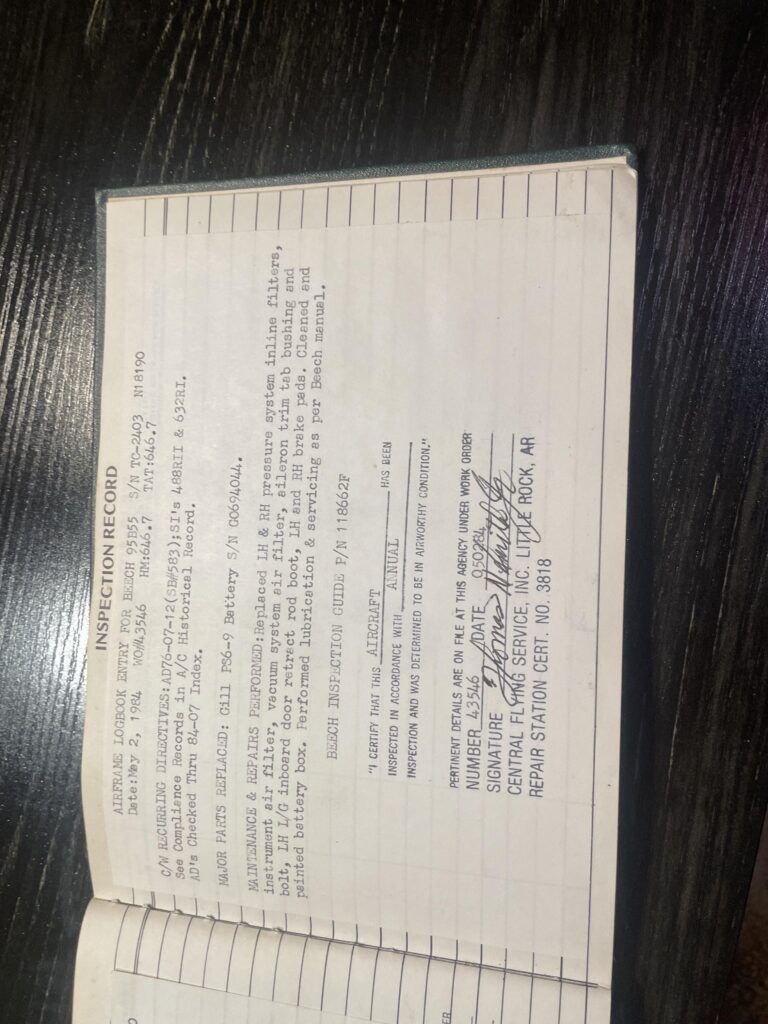 INSPECTION RECORD
AIRFRAME LOGBOOK ENTRY FOR BEECH 95B55 S/N TC-2403 N18190
Date:May 2, 1984 WO#43546 HM:646.7 TAT:646.7
C/W RECURRING DIRECTIVES:AD76-07-12(SB#583);SI's 488RII & 632RI.
See Compliance Records in A/C Historical Record.
AD's Checked Thru 84-07 Index.
MAJOR PARTS REPLACED: Gill PS6-9 Battery S/N G0694044.
MAINTENANCE & REPAIRS PERFORMED:Replaced LH & RH pressure system inline filters,
instrument air filter, vacuum system air filter, aileron trim tab bushing and
bolt, LH L/G inboard door retract rod boot, LH and RH brake pads. Cleaned and
painted battery box. Performed lubrication & servicing as per Beech manual.
BEECH INSPECTION GUIDE P/N 118662F
"I CERTIFY THAT THIS AIRCRAFT HAS BEEN
INSPECTED IN ACCORDANCE WITH ANNUAL
INSPECTION AND WAS DETERMINED TO BE IN AIRWORTHY CONDITION."
PERTINENT DETAILS ARE ON FILE AT THIS AGENCY UNDER WORK ORDER
NUMBER 43546 DATE 050284
SIGNATURE Thomas
CENTRAL FLYING SERVICE, INC. LITTLE ROCK, AR
REPAIR STATION CERT. NO. 3818